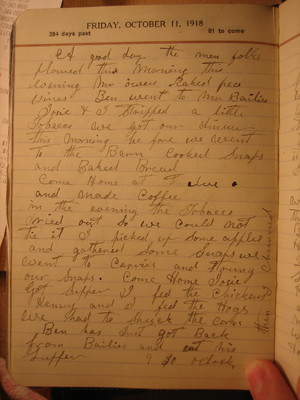 FRIDAY, OCTOBER 11, 1918
284 days past 81 to come
A good day the men folks
plowed this morning this
evening Mr Owens Raked pea
vines Ben went to Mrs Bailies
Josie & I Stripped a little
Tobacco we got our dinner
This morning before we went
to the Barn Cooked Snaps
and Baked Bread
Come Home at
and made Coffee
in the evening the Tobacco
dried out so we could not
tie it I picked up some apples
and gathered some Snaps we
went to and
our Snaps. Come Home Josie
Got Supper I fed the Chickens
and I fed the Hogs
We had to Shuck the corn
Ben has Just got Back
from Bailies and eat his
Supper 9 30 oclock